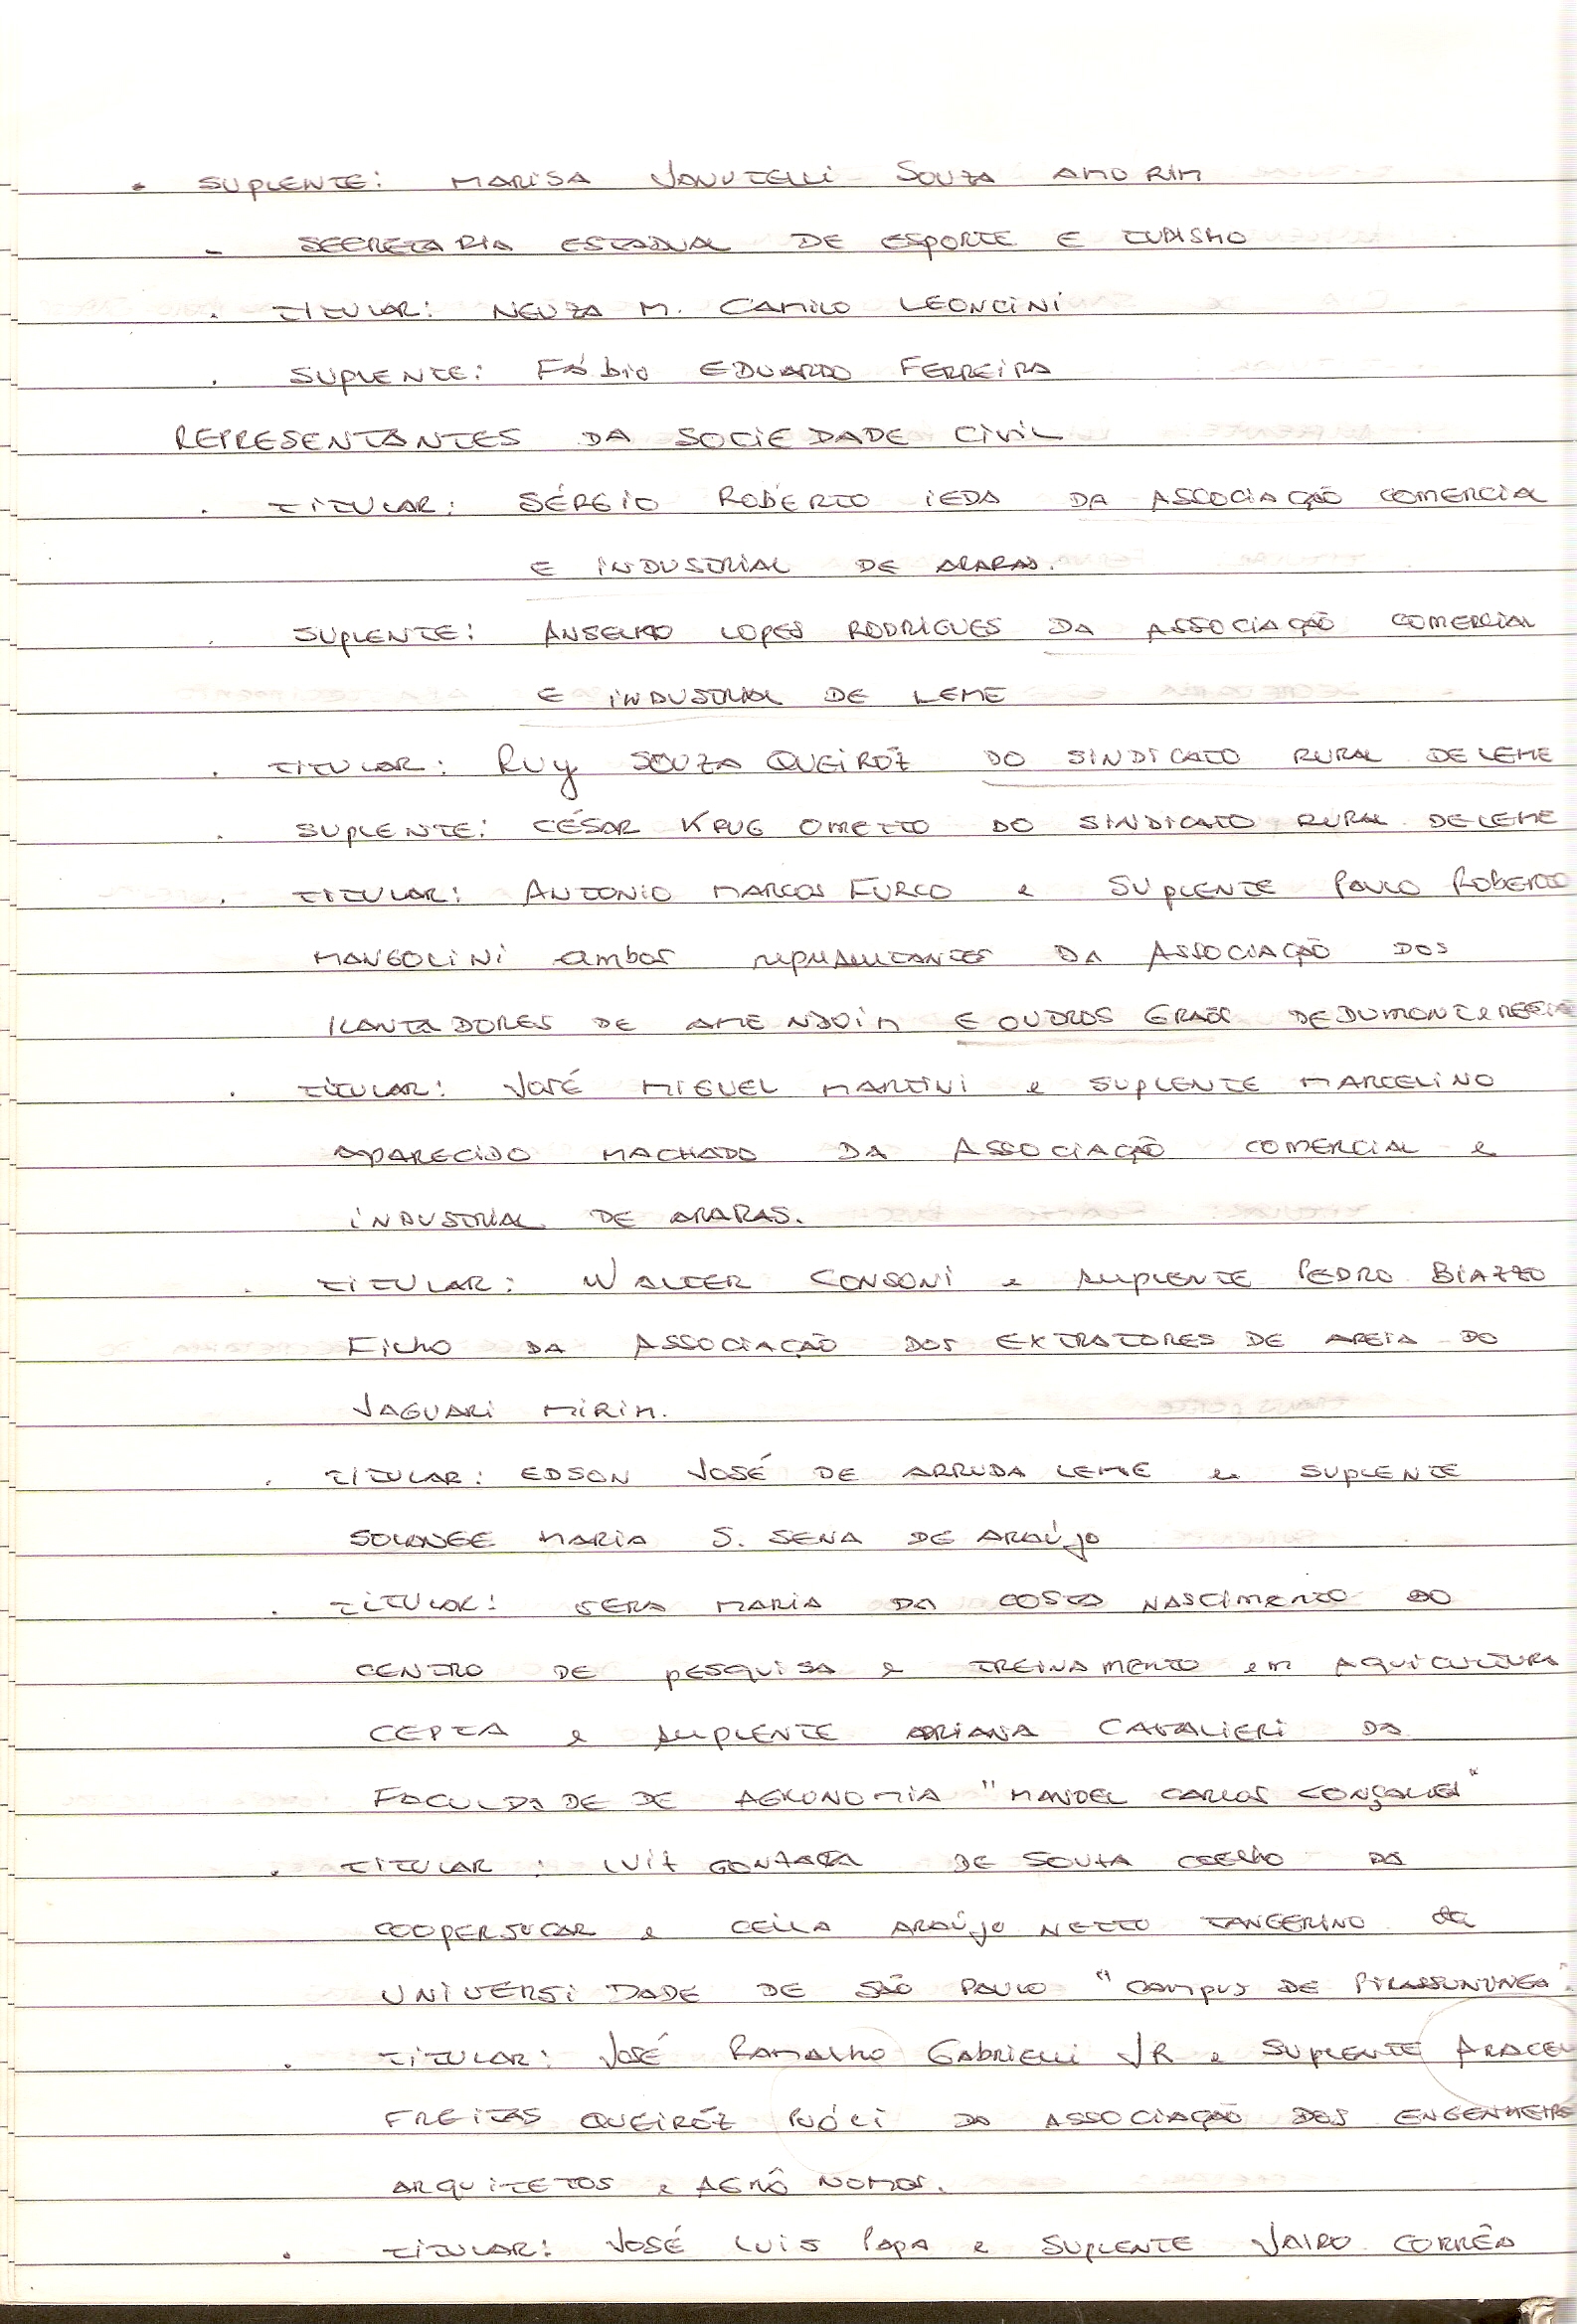 • SUPLENTE: MARISA VANUTELLI SOUZA AMORIM
- SECRETARIA ESTADUAL DE ESPORTE E TURISMO
. TITULAR: NEUZA M. CAMILO LEONCINI
. SUPLENTE: FÁBIO EDUARDO FERREIRA
REPRESENTANTES DA SOCIEDADE CIVIL
. TITULAR: SÉRGIO ROBERTO IEDA DA ASSOCIAÇÃO COMERCIAL
E INDUSTRIAL DE ARARAS.
. SUPLENTE: ANSELMO LOPES RODRIGUES DA ASSOCIAÇÃO COMERCIAL
E INDUSTRIAL DE LEME
. TITULAR: RUY SOUZA QUEIRÓZ DO SINDICATO RURAL DE LEME
. SUPLENTE: CÉSAR KRUG OMETTO DO SINDICATO RURAL DE LEME
. TITULAR: ANTONIO MARCOS FURCO e SUPLENTE PAULO ROBERTO
MANGOLINI ambos representantes DA ASSOCIAÇÃO DOS
PLANTADORES DE AMENDOIM E OUTROS GRÃOS DE DUMONT e REGIÃO
. TITULAR: JOSÉ MIGUEL MARTINI e SUPLENTE MARCELINO
APARECIDO MACHADO DA ASSOCIAÇÃO COMERCIAL e
INDUSTRIAL DE ARARAS.
. TITULAR: WALTER CONSONI e SUPLENTE PEDRO BIAZZO
FILHO DA ASSOCIAÇÃO DOS EXTRATORES DE AREIA DO
JAGUARI MIRIM.
. TITULAR: EDSON JOSÉ DE ARRUDA LEME e SUPLENTE
SOLANGE MARIA S. SENA DE ARAÚJO
. TITULAR: VERA MARIA DA COSTA NASCIMENTO DO
CENTRO DE PESQUISA e TREINAMENTO em AQUICULTURA
CEPTA e SUPLENTE ARIANA CAVALIERI DA
FACULDADE DE AGRONOMIA "MANOEL CARLOS GONÇALVES"
. TITULAR: LUIZ GONZAGA DE SOUZA COELHO DA
COOPERSUCAR e CELIA ARAÚJO NETTO TANGERINO da
UNIVERSIDADE DE SÃO PAULO "CAMPUS DE PIRASSUNUNGA".
. TITULAR: JOSÉ RAMALHO GABRIELLI JR e SUPLENTE ARACELI
FREITAS QUEIRÓZ DA ASSOCIAÇÃO DOS ENGENHEIROS
ARQUITETOS e AGRÔNOMOS.
. TITULAR: JOSÉ LUIS PAPA e SUPLENTE JAIRO CORRÊA